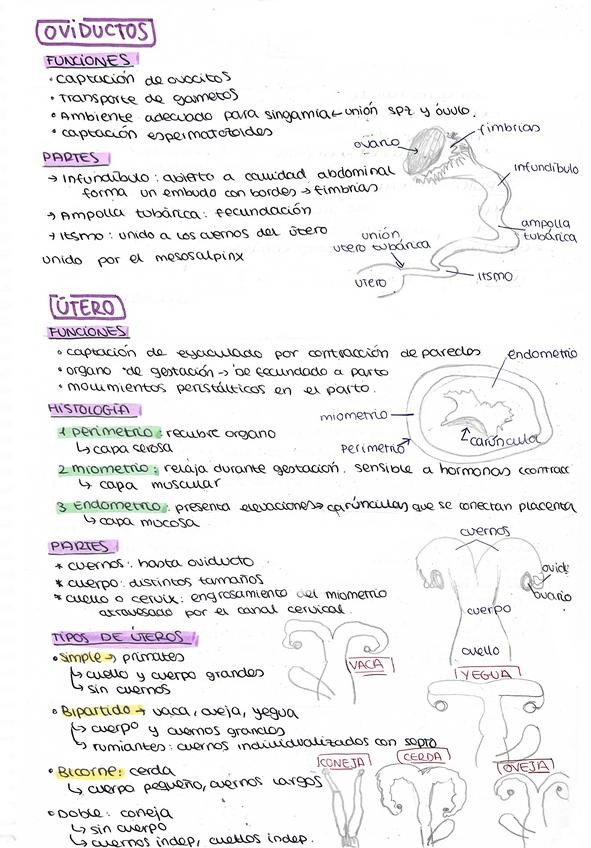 OVIDUCTOS
FUNCIONES
• captación de ovocitos
• Transporte de gametos
• Ambiente adecuado para singamia ← unión spz y óvulo.
• captación espermatozoides
ovario
fimbrias
PARTES
→ Infundíbulo: abierto a cavidad abdominal
forma un embudo con bordes → fimbrias
infundíbulo
→ Ampolla tubárica: fecundación
ampolla
tubárica
→ Itsmo: unido a los cuernos del útero
unión
utero tubárica
unido por el mesosalpinx
utero
itsmo
ÚTERO
FUNCIONES
• captación de eyaculado por contracción de paredes
endometrio
• organo de gestación → de fecundado a parto
• movimientos peristálticos en el parto.
HISTOLOGÍA
miometrio
Perimetrio
carúncula
1 perimetrio: recubre organo
↳ capa serosa
2 miometrio: relaja durante gestación. sensible a hormonas contracc
↳ capa muscular
3 Endometrio: presenta elevaciones → carúnculas que se conectan placenta
↳ capa mucosa
cuernos
PARTES
* cuernos: hasta oviducto
* cuerpo: distintos tamaños
* cuello o cervix: engrosamiento del miometrio
atravesado por el canal cervical.
ovidc
ovario
cuerpo
cuello
TIPOS DE ÚTEROS
• Simple → primates
↳ cuello y cuerpo grandes
↳ sin cuernos
VACA
YEGUA
• Bipartido → vaca, oveja, yegua
↳ cuerpo y cuernos grandes
↳ rumiantes: cuernos individualizados con septo
• Bicorne: cerda
↳ cuerpo pequeño, cuernos largos
CONEJA
CERDA
OVEJA
• Doble: coneja
↳ sin cuerpo
↳ cuernos indep, cuellos indep.